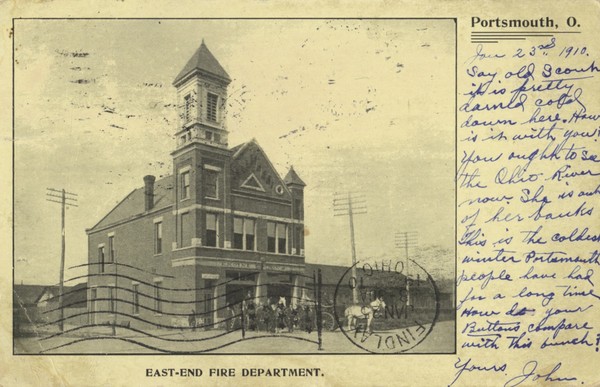 Portsmouth, O.
Jan 23rd 1910.
Say old Scout
it is pretty
darned cold
down here. How
is it with you?
You ought to see
the Ohio River
now. She is out
of her banks
This is the coldest
winter Portsmouth
people have had
for a long time
How do your
Buttons compare
with this bunch?
Yours, John.
FINDLAY
OHIO
EAST-END FIRE DEPARTMENT.